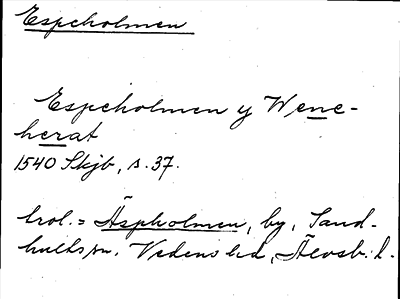 Espeholmen
Espeholmen y Wene-
herat
1540 Skjb, s. 37.
trol. = Äspholmen, by, Sand-
hults sn. Vedens hd, Älvsb. l.